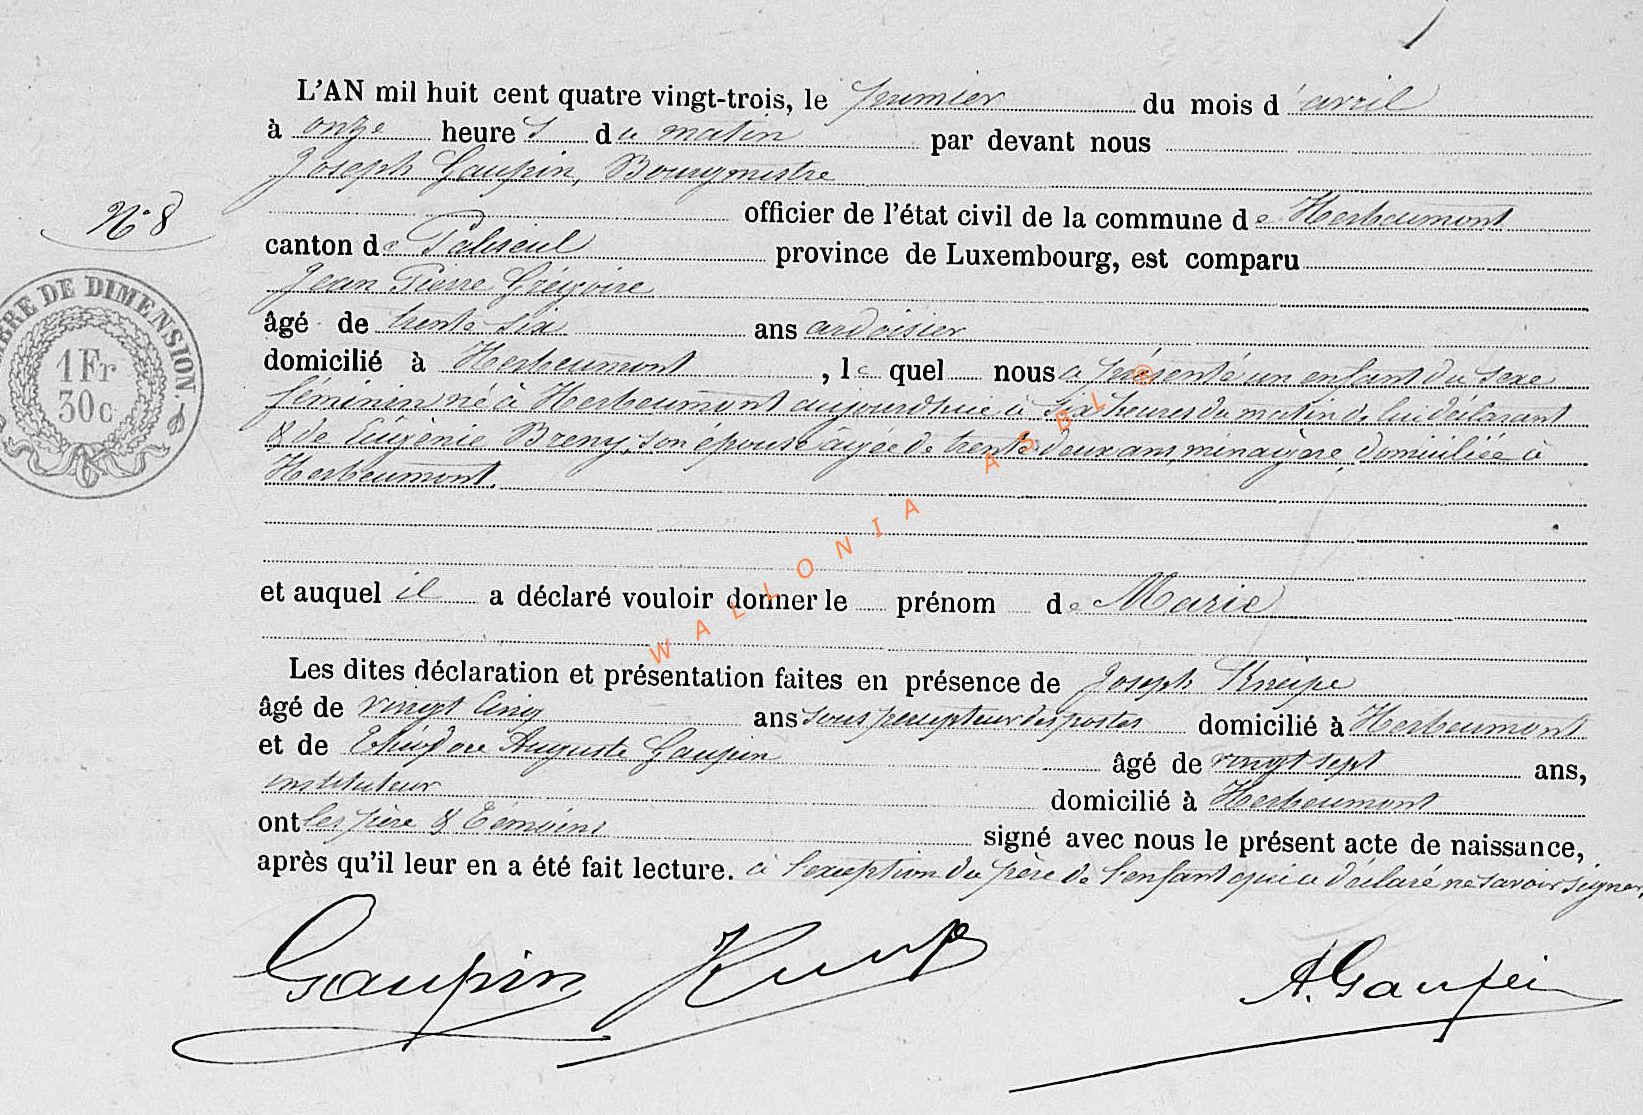 L'AN mil huit cent quatre vingt-trois, le premier du mois d'avril
à onze heures du matin par devant nous
Joseph Gaupin, Bourgmestre
officier de l'état civil de la commune de Herbeumont
N° 8
canton de Paliseul province de Luxembourg, est comparu
Jean Pierre Grégoire
TIMBRE DE DIMENSION.
1 Fr
30c
âgé de trente six ans ardoisier
domicilié à Herbeumont, lequel nous a présenté un enfant du sexe
féminin né à Herbeumont aujourdhui à six heures du matin de lui déclarant
& de Eugènie Breny, son épouse âgée de trente deux ans, ménagère, domiciliée à
Herbeumont.
WALLONIA ASBL ®
et auquel il a déclaré vouloir donner le prénom de Marie
Les dites déclaration et présentation faites en présence de Joseph Kneipe
âgé de vingt cinq ans sous percepteur des postes domicilié à Herbeumont
et de Théodore Auguste Gaupin âgé de vingt sept ans,
instituteur domicilié à Herbeumont
ont les père & témoins signé avec nous le présent acte de naissance,
après qu'il leur en a été fait lecture. à l'exception du père de l'enfant qui a déclaré ne savoir signer.
Gaupin
A. Gaupin